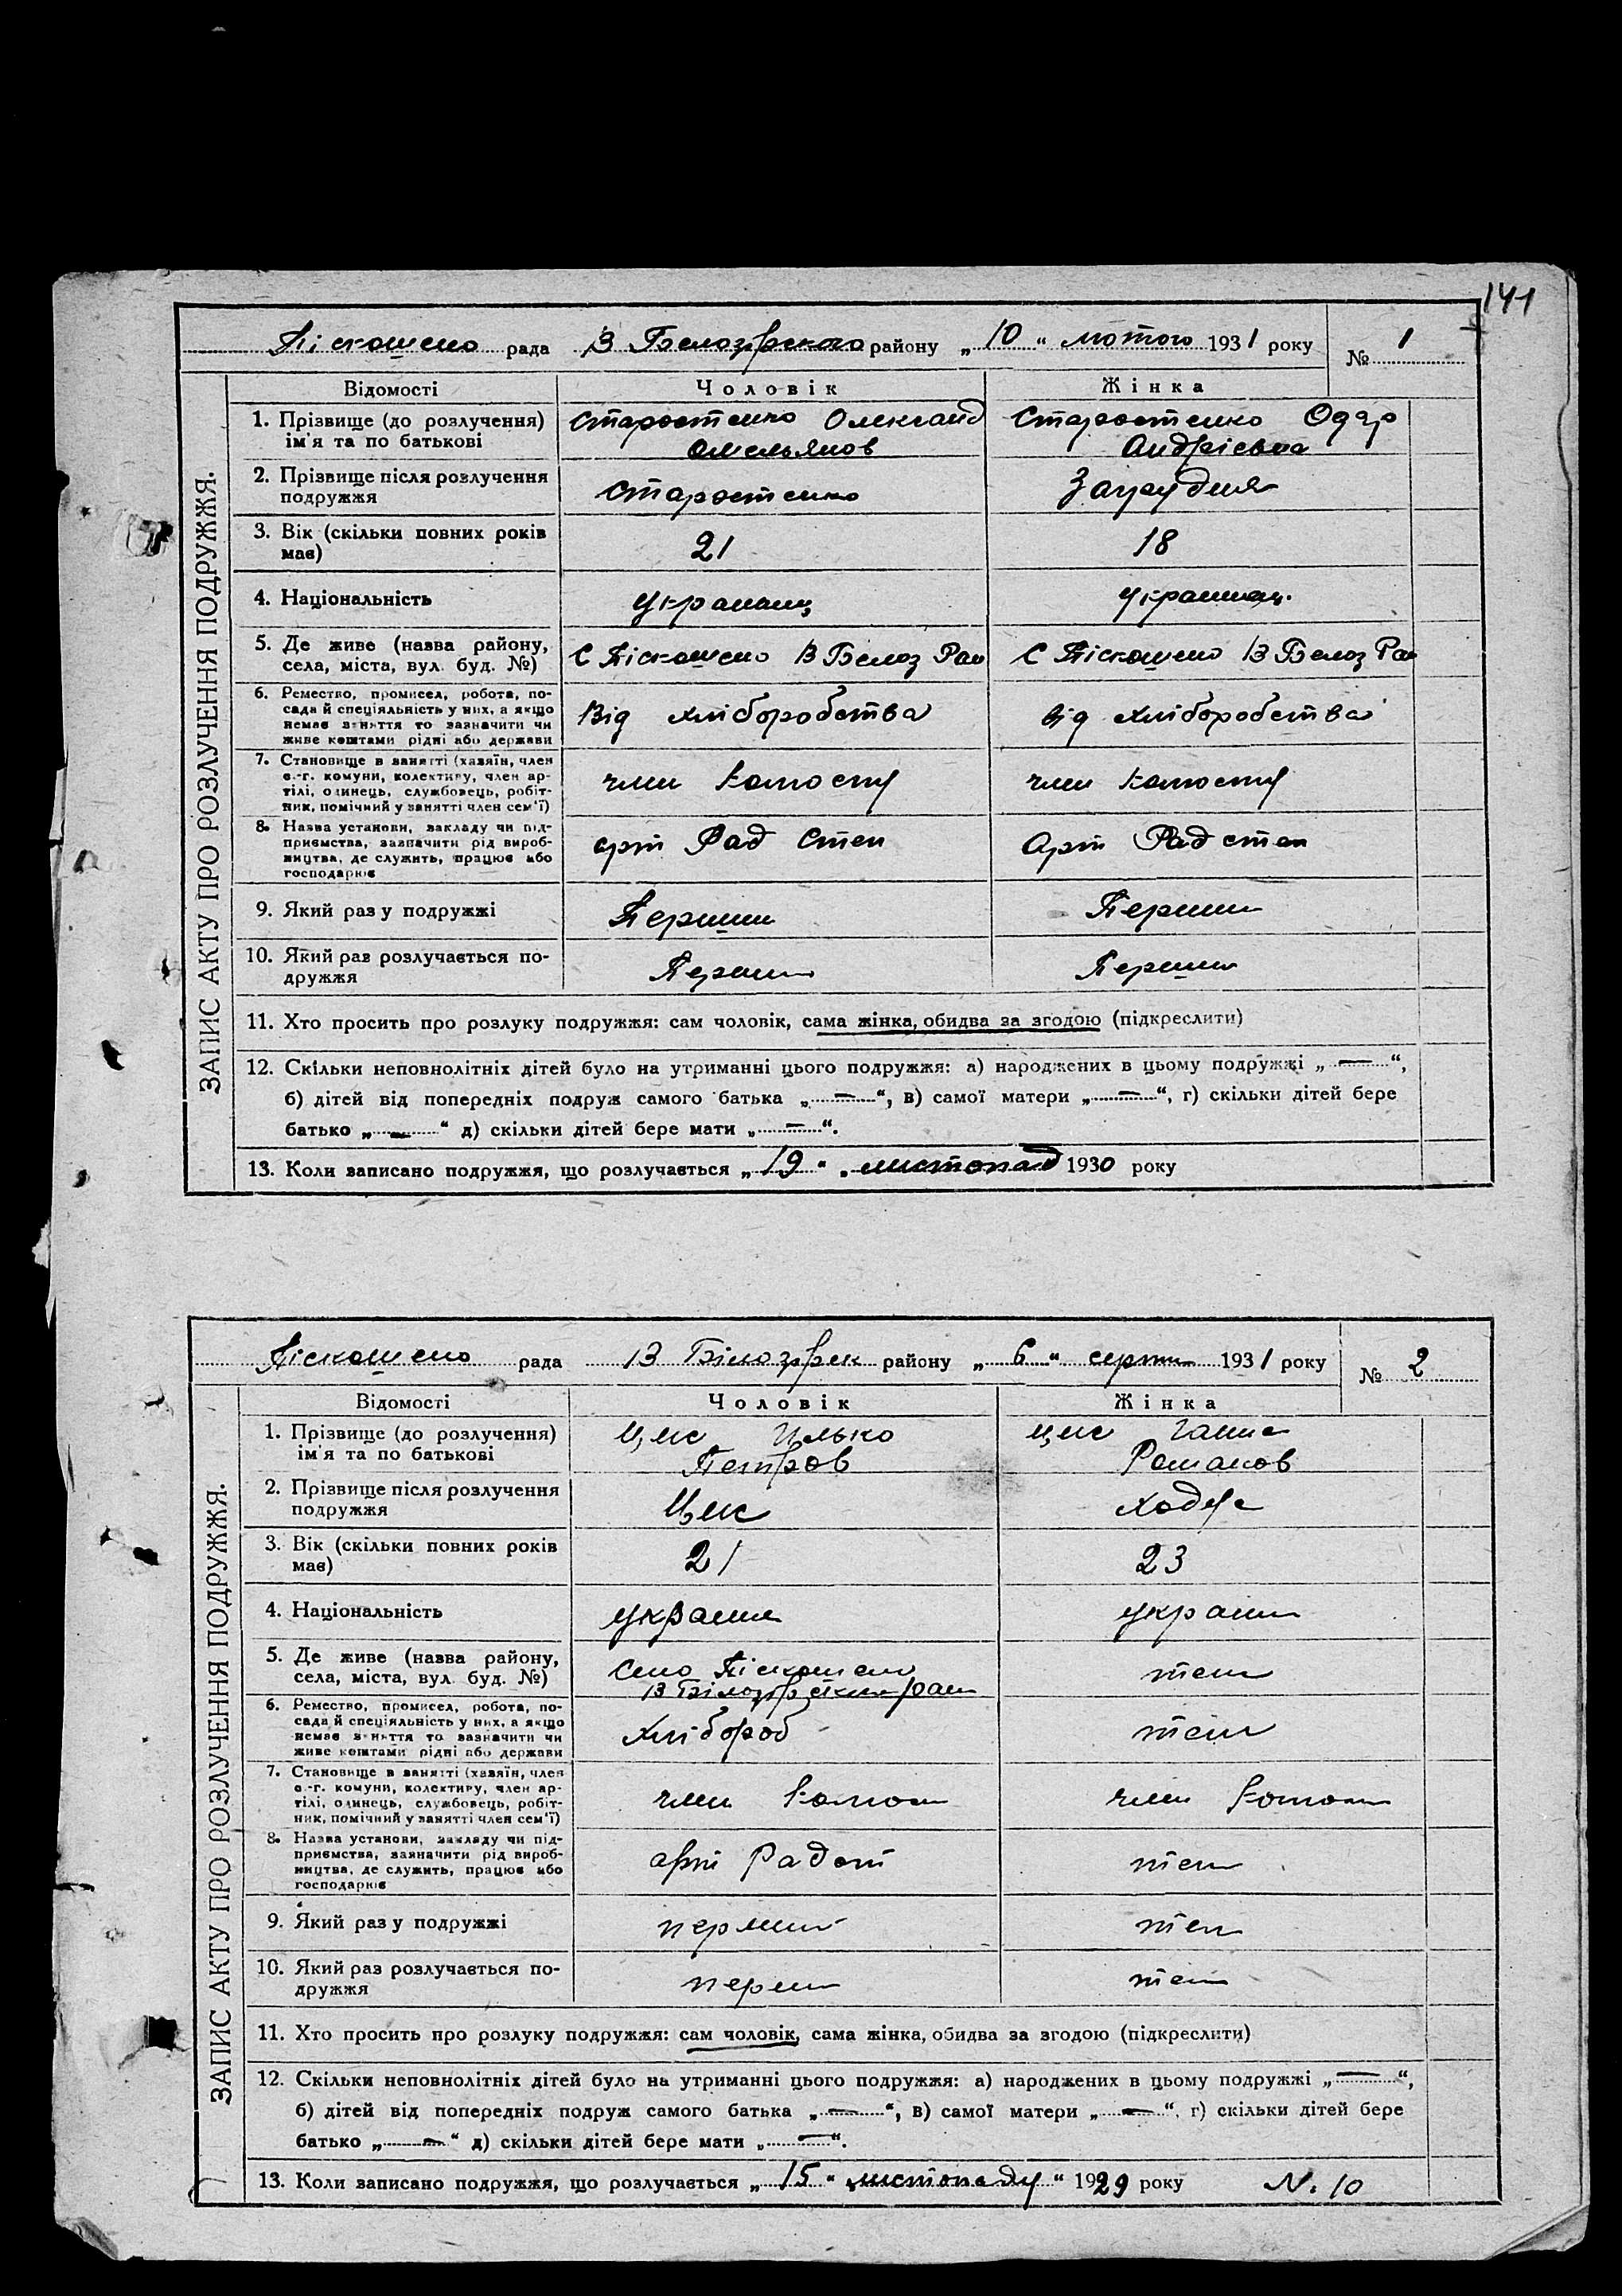 141
Піскошено рада В Белозерского району „10“ лютого 1931 року № 1
ЗАПИС АКТУ ПРО РОЗЛУЧЕННЯ ПОДРУЖЖЯ.
Відомості Чоловік Жінка
1. Прізвище (до розлучення) Старостенко Олександ Старостенко Одар
ім'я та по батькові Омельянов Андрієвна
2. Прізвище після розлучення
подружжя Старостенко
3. Вік (скільки повних років
має) 21 18
4. Національність
5. Де живе (назва району,
села, міста, вул. буд. №) С Піскошено В Белоз Рай С Піскошено В Белоз Рай
6. Ремество, промисел, робота, по-
сада й спеціяльність у них, а якщо
немає заняття то зазначити чи
живе коштами рідні або держави Від хліборобства від хліборобства
7. Становище в занятті (хазяїн, член
с.-г. комуни, колективу, член ар-
тілі, одинець, службовець, робіт-
ник, помічний у занятті член сем'ї) член член
8. Назва установи, закладу чи під-
приємства, зазначити рід вироб-
ництва, де служить, працює або
господарює арт Рад Степ Арт Рад степ
9. Який раз у подружжі Перший Перший
10. Який раз розлучається по-
дружжя Перший Перший
11. Хто просить про розлуку подружжя: сам чоловік, сама жінка, обидва за згодою (підкреслити)
12. Скільки неповнолітніх дітей було на утриманні цього подружжя: а) народжених в цьому подружжі „—“,
б) дітей від попередніх подруж самого батька „—“, в) самої матери „—“, г) скільки дітей бере
батько „—“ д) скільки дітей бере мати „—“.
13. Коли записано подружжя, що розлучається „19“ листопад 1930 року
Піскошено рада В Білозерск району „6“ серпня 1931 року № 2
ЗАПИС АКТУ ПРО РОЗЛУЧЕННЯ ПОДРУЖЖЯ.
Відомості Чоловік Жінка
1. Прізвище (до розлучення) Цис Илько Цис Ганна
ім'я та по батькові Петров Романов
2. Прізвище після розлучення
подружжя Цис
3. Вік (скільки повних років
має) 21 23
4. Національність
5. Де живе (назва району, Село Піскошено
села, міста, вул. буд. №) В Білозерский рай теж
6. Ремество, промисел, робота, по-
сада й спеціяльність у них, а якщо
немає заняття то зазначити чи
живе коштами рідні або держави Хлібороб теж
7. Становище в занятті (хазяїн, член
с.-г. комуни, колективу, член ар-
тілі, одинець, службовець, робіт-
ник, помічний у занятті член сем'ї) член член
8. Назва установи, закладу чи під-
приємства, зазначити рід вироб-
ництва, де служить, працює або
господарює арт Радст теж
9. Який раз у подружжі перший теж
10. Який раз розлучається по-
дружжя перши теж
11. Хто просить про розлуку подружжя: сам чоловік, сама жінка, обидва за згодою (підкреслити)
12. Скільки неповнолітніх дітей було на утриманні цього подружжя: а) народжених в цьому подружжі „—“,
б) дітей від попередніх подруж самого батька „—“, в) самої матери „—“, г) скільки дітей бере
батько „—“ д) скільки дітей бере мати „—“.
13. Коли записано подружжя, що розлучається „15“ листопаду 1929 року N. 10